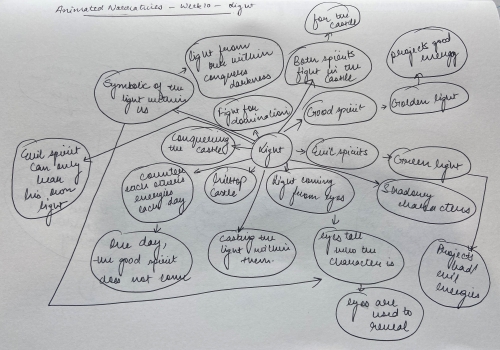 Animated Narratives - Week 10 - Light
for the
castle
light from
one within
conquers
darkness
Both spirits
fight in the
castle
projects good
energy
Symbolic of the
light within
us
Fight for
domination
Good spirit
Golden light
Conquering
the castle
Light
Evil spirits
Green light
Evil spirit
can only
bear
his own
light
counters
each others
energies
each day
hilltop
castle
light coming
from eyes
Shadowy
characters
One day,
the good spirit
does not come
casting the
light within
them.
eyes tell
who the
character is
Projects
bad/
evil
energies
eyes are
used to
reveal